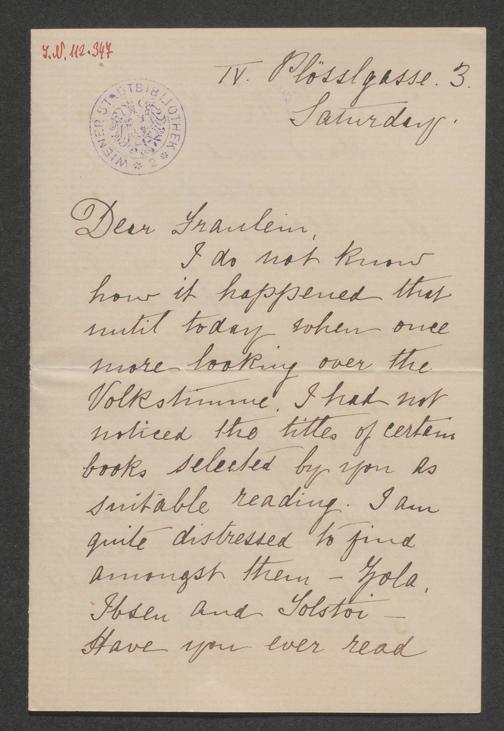 J.N. 112.347
IV. Plösslgasse. 3.
Saturday.
WIENER STADTBIBLIOTHEK
2
Dear Fraulein,
I do not know
how it happened that
until today when once
more looking over the
Volkstimme, I had not
noticed the titles of certain
books selected by you as
suitable reading. I am
quite distressed to find
amongst them – Zola,
Ibsen and Tolstoi –
Have you ever read